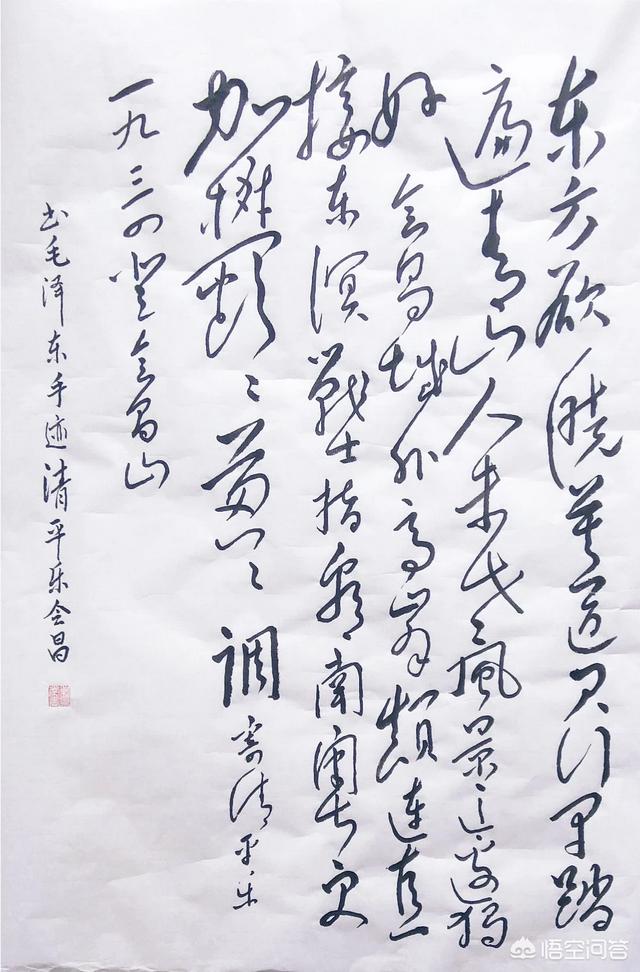 东方欲晓莫道君行早踏
遍青山人未老風景这邊独
好会昌城外高峰颠连直
接东溟戰士指看南粤更
加鬱〻葱〻調寄清平乐
一九三四登会昌山
书毛泽东手迹清平乐会昌
悟空问答